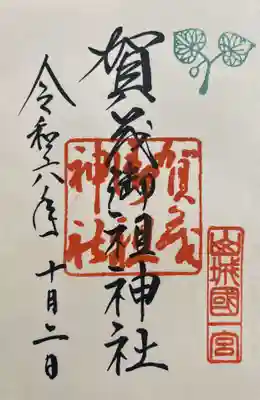 山城國一宮
賀茂御祖神社
賀茂御祖神社
令和六年十月二日